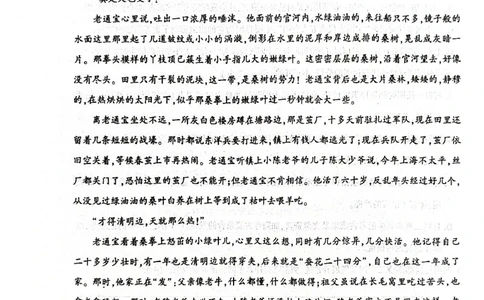 老通宝心里说,吐出一口浓厚的唾沫。他面前的官河内,水绿油油的,来往船只不多,镜子般的
水面这里那里起了几道皱纹或小小的涡漩,倒影在水里的泥岸和岸边成排的桑树,晃乱成灰暗一
片。那拳头模样的丫枝顶已簇生着小手指儿大的嫩绿叶。这密密层层的桑树,沿着官河望去,好像
没有尽头。田里只有干裂的泥块,这一带,是桑树的势力!老通宝背后也是大片桑林,矮矮的,静穆
的,在热烘烘的太阳光下,似乎那桑拳上的嫩绿叶过一秒钟就会大一些。
离老通宝坐处不远,一所灰白色楼房蹲在塘路边,那是茧厂,十多天前驻扎过军队,现在田里还
留着几条短短的战壕。那时都说东洋兵要打进来,镇上有钱人都逃光了;现在兵队开走了,茧厂依
旧空关着,等候春茧上市再热闹。老通宝听镇上小陈老爷的儿子陈大少爷说,今年上海不太平,丝
厂都关门了,恐怕这里的茧厂也不能开;但老通宝不肯相信。他活了六十岁,反乱年头经过好几个,
从没见过绿油油的桑叶白养在树上等到成了枯叶去喂羊吃。
“才得清明边,天就那么热!”
老通宝看着桑拳上怒茁的小绿叶儿,心里又这么想,同时有几分惊异,几分快活。他记得自己
二十多岁少壮时,有一年也是清明边就得穿夹,后来就是“蚕花二十四分”,自己也在这一年成了
家。那时,他家正在“发”;父亲像老牛,什么都懂,什么都做得;祖父虽说在长毛窝里吃过苦头,也